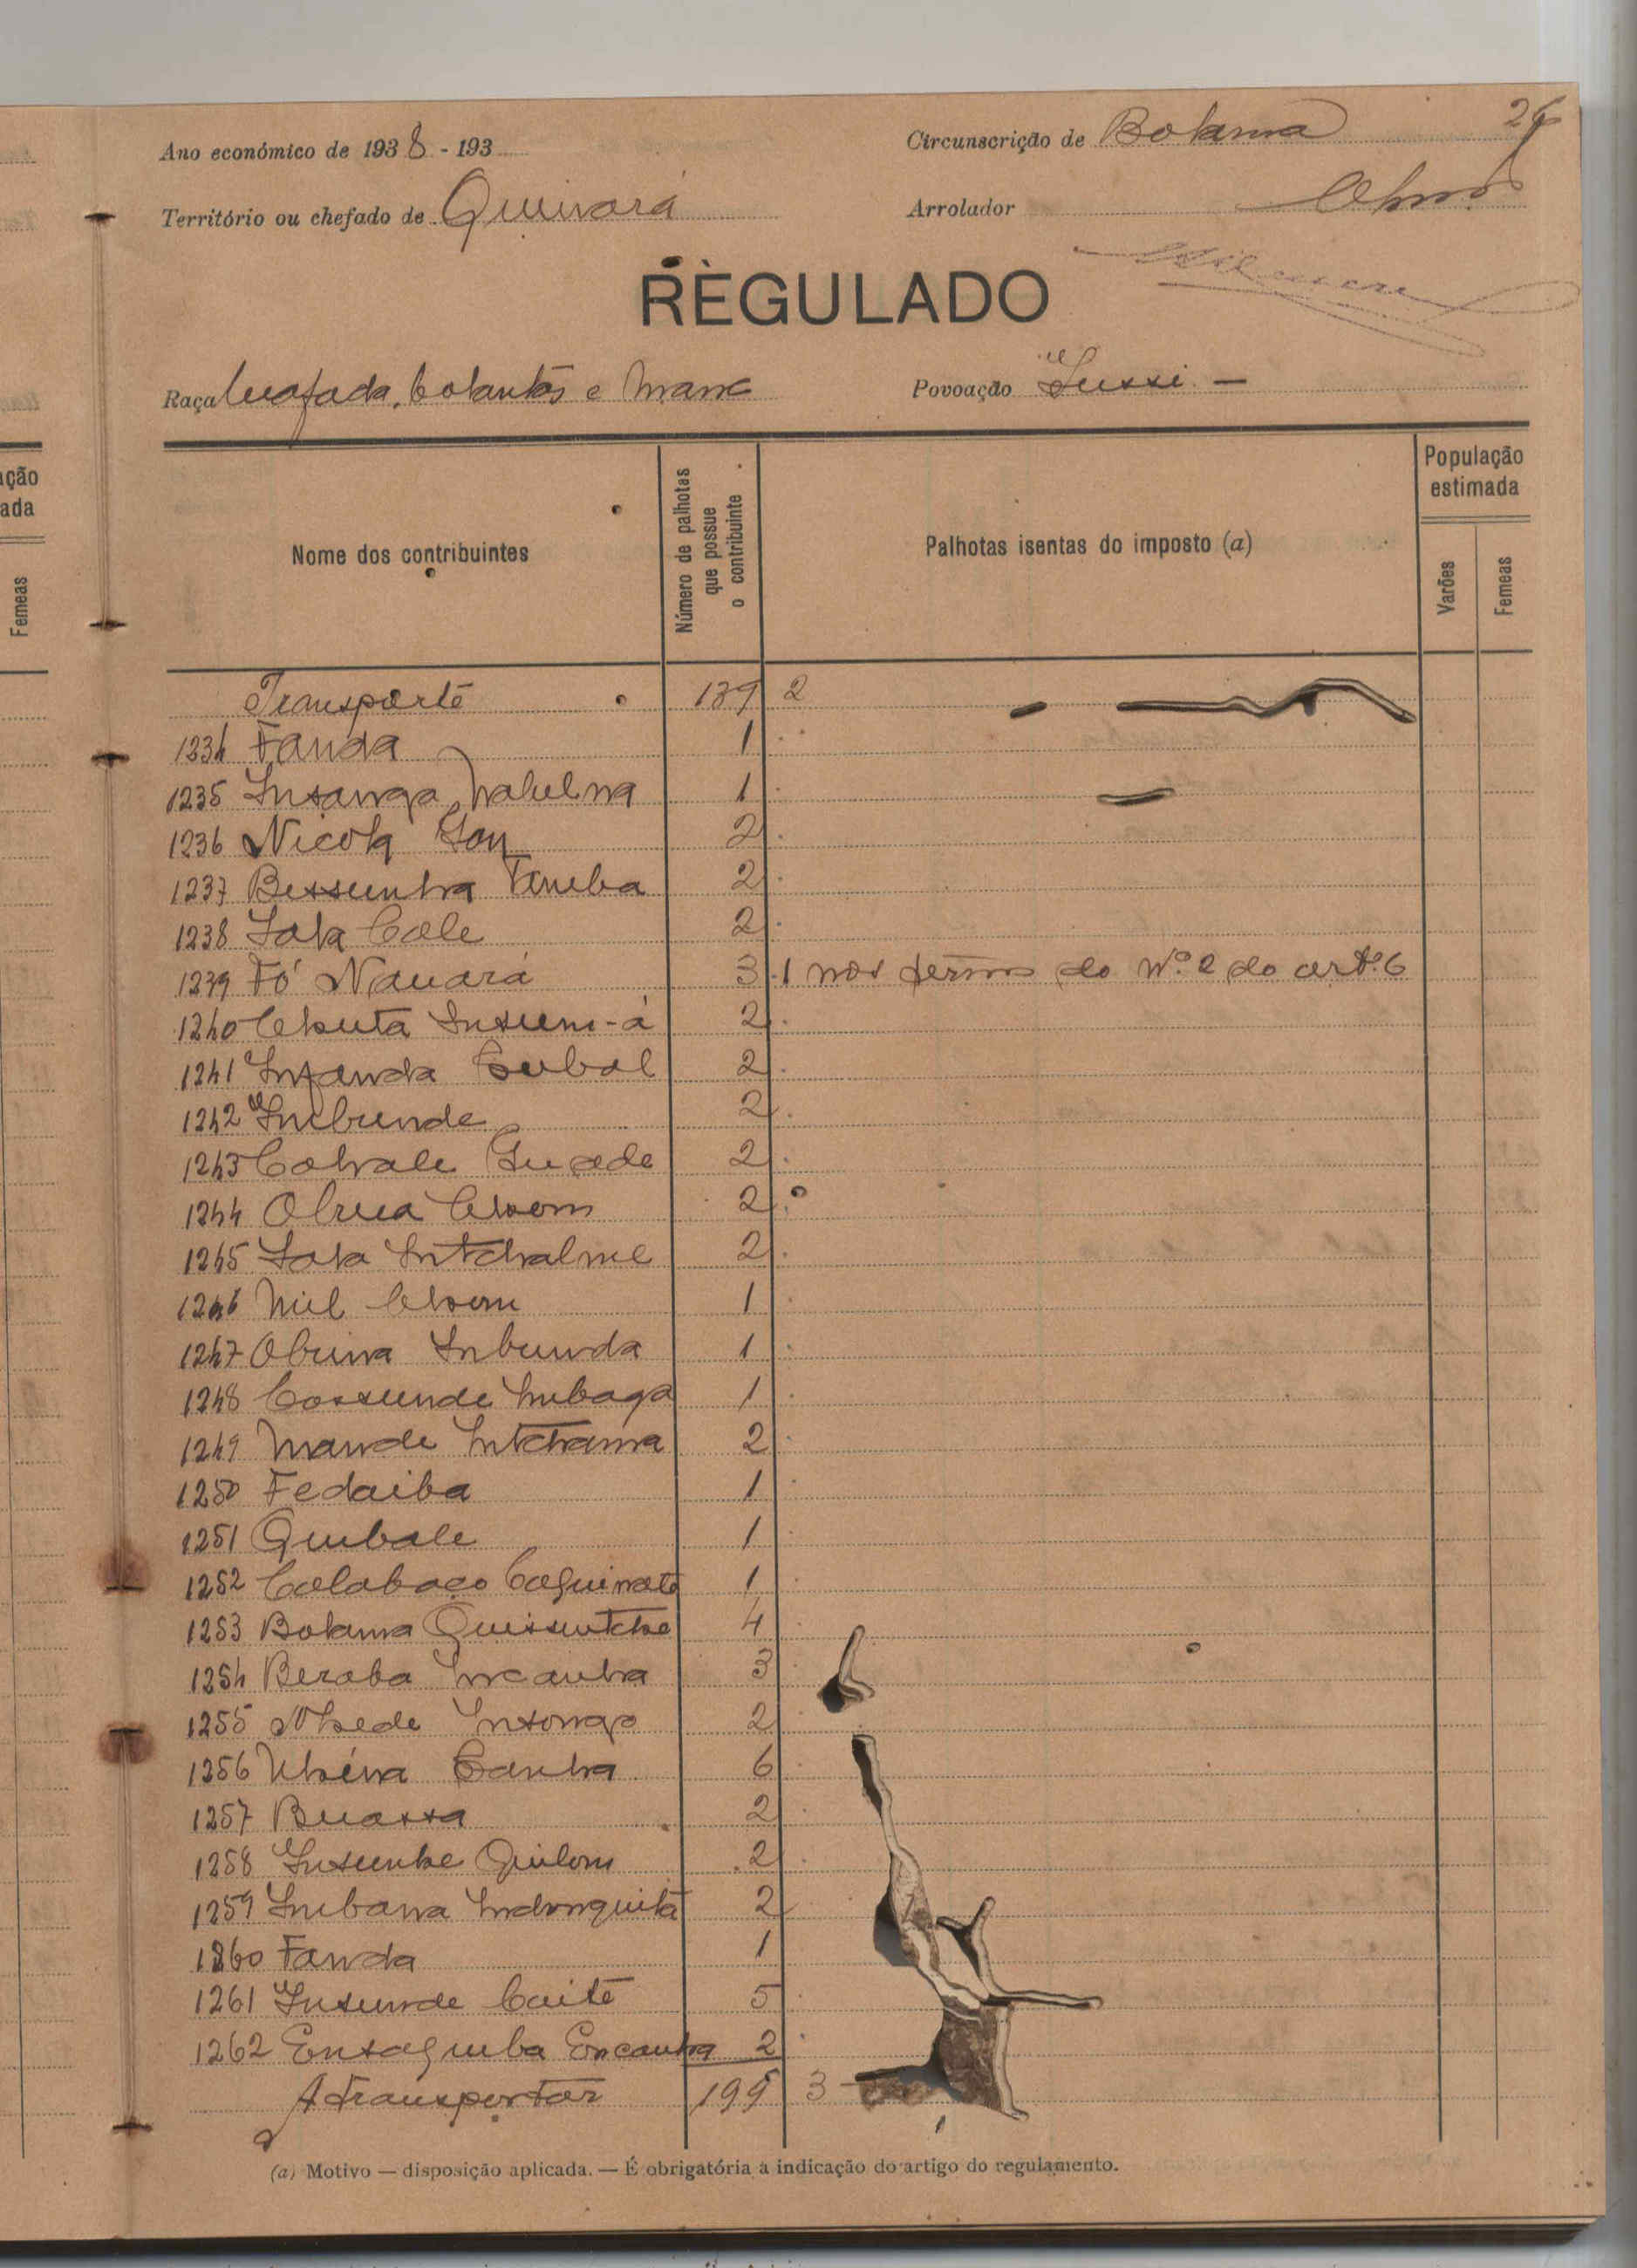 Ano económico de 1938 - 193
Circunscrição de Bolama
Território ou chefado de Quinará
Arrolador
REGULADO
Raça
Povoação Jussi. —
População estimada
Nome dos contribuintes
Número de palhotas que possue o contribuinte
Palhotas isentas do imposto (a)
Varões
Femeas
Transporte 139 2
1234 Fanda 1
1235 Insanga 1
1236 Nicola 2
1237 Bessunha 2
1238 Lala Cole 2
1239 Fó Nauará 3 1 nos termos do Nº 2 do artº 6
1240 Chuta Insum-á 2
1241 Infanda Cubal 2
1242 Inbunde 2
1243 2
1244 2
1245 Lala Intchalme 2
1246 1
1247 Obuna Inbunda 1
1248 Cossunde Inbaga 1
1249 Mande Intchama 2
1250 Fedaiba 1
1251 Quibale 1
1252 Calabaço 1
1253 Bolama Quissuntche 4
1254 Beraba Incanha 3
1255 2
1256 Canha 6
1257 Buassa 2
1258 Insunhe Quilom 2
1259 Inbana 2
1260 Fanda 1
1261 Insunde Caite 5
1262 Ensaguiba Encanha 2
A transportar 195 3
(a) Motivo — disposição aplicada. — É obrigatória a indicação do artigo do regulamento.
ação
ada
Femeas